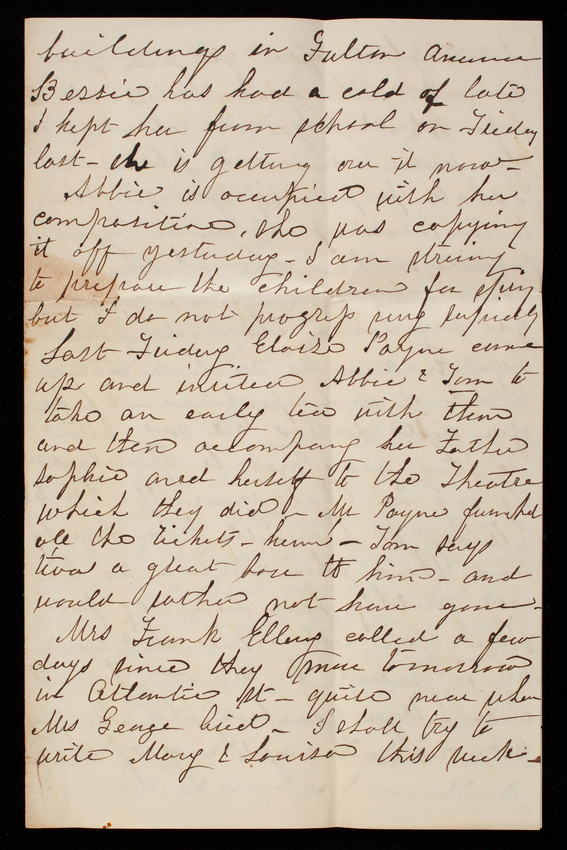 buildings in Fulton Avenue
Bessie has had a cold of late
I kept her from school on Friday
last - she is getting over it now -
Abbie is occupied with her
composition, she was copying
it off yesterday - I am striving
to prepare the children for spring
but I do not progress very rapidly
Last Friday Eloise Payne came
up and invited Abbie & Tom to
take an early tea with them
and then accompany her Father
Sophie and herself to the Theatre
which they did - Mr Payne furnished
all the tickets - hem! - Tom says
twas a great bore to him - and
would rather not have gone -
Mrs Frank Ellery called a few
days since they move tomorrow
in Atlantic St - quite near where
Mrs George lived - I shall try to
write Mary & Louisa this week -